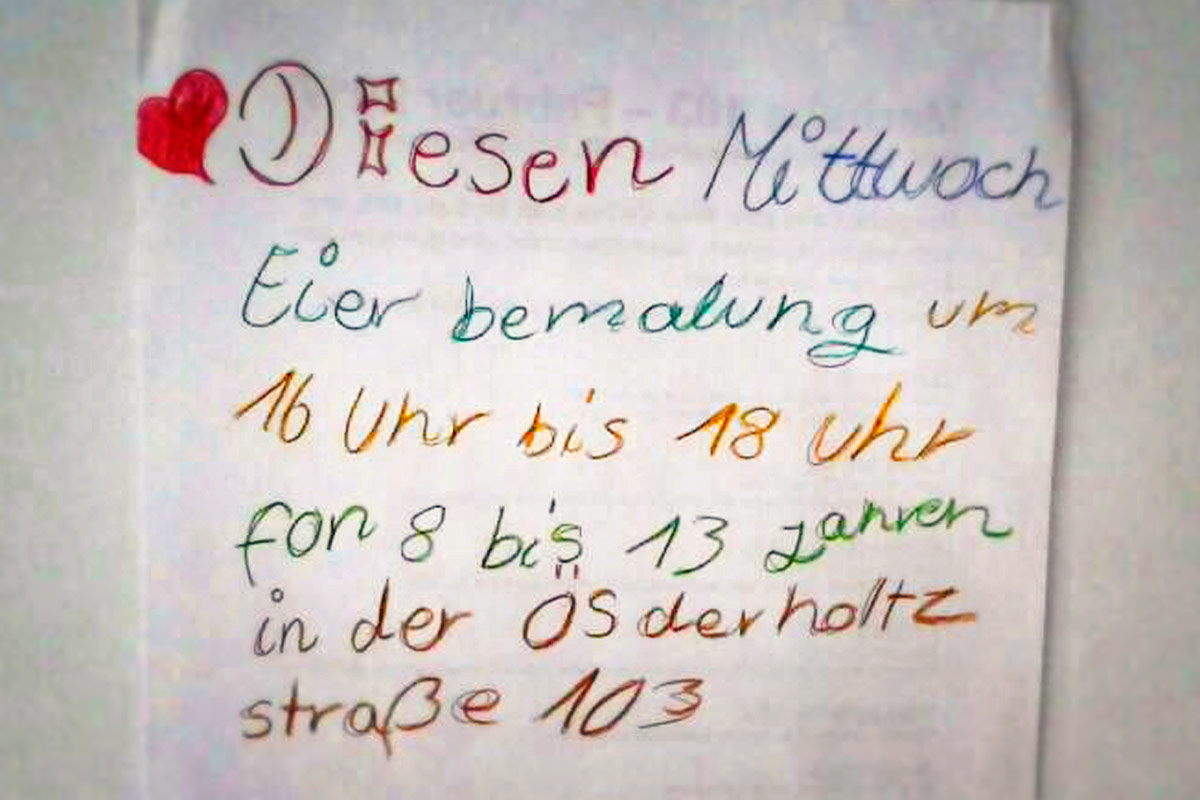 Diesen Mittwoch
Eier bemalung um
16 Uhr bis 18 uhr
fon 8 bis 13 jahren
in der Ösderholtz
straße 103